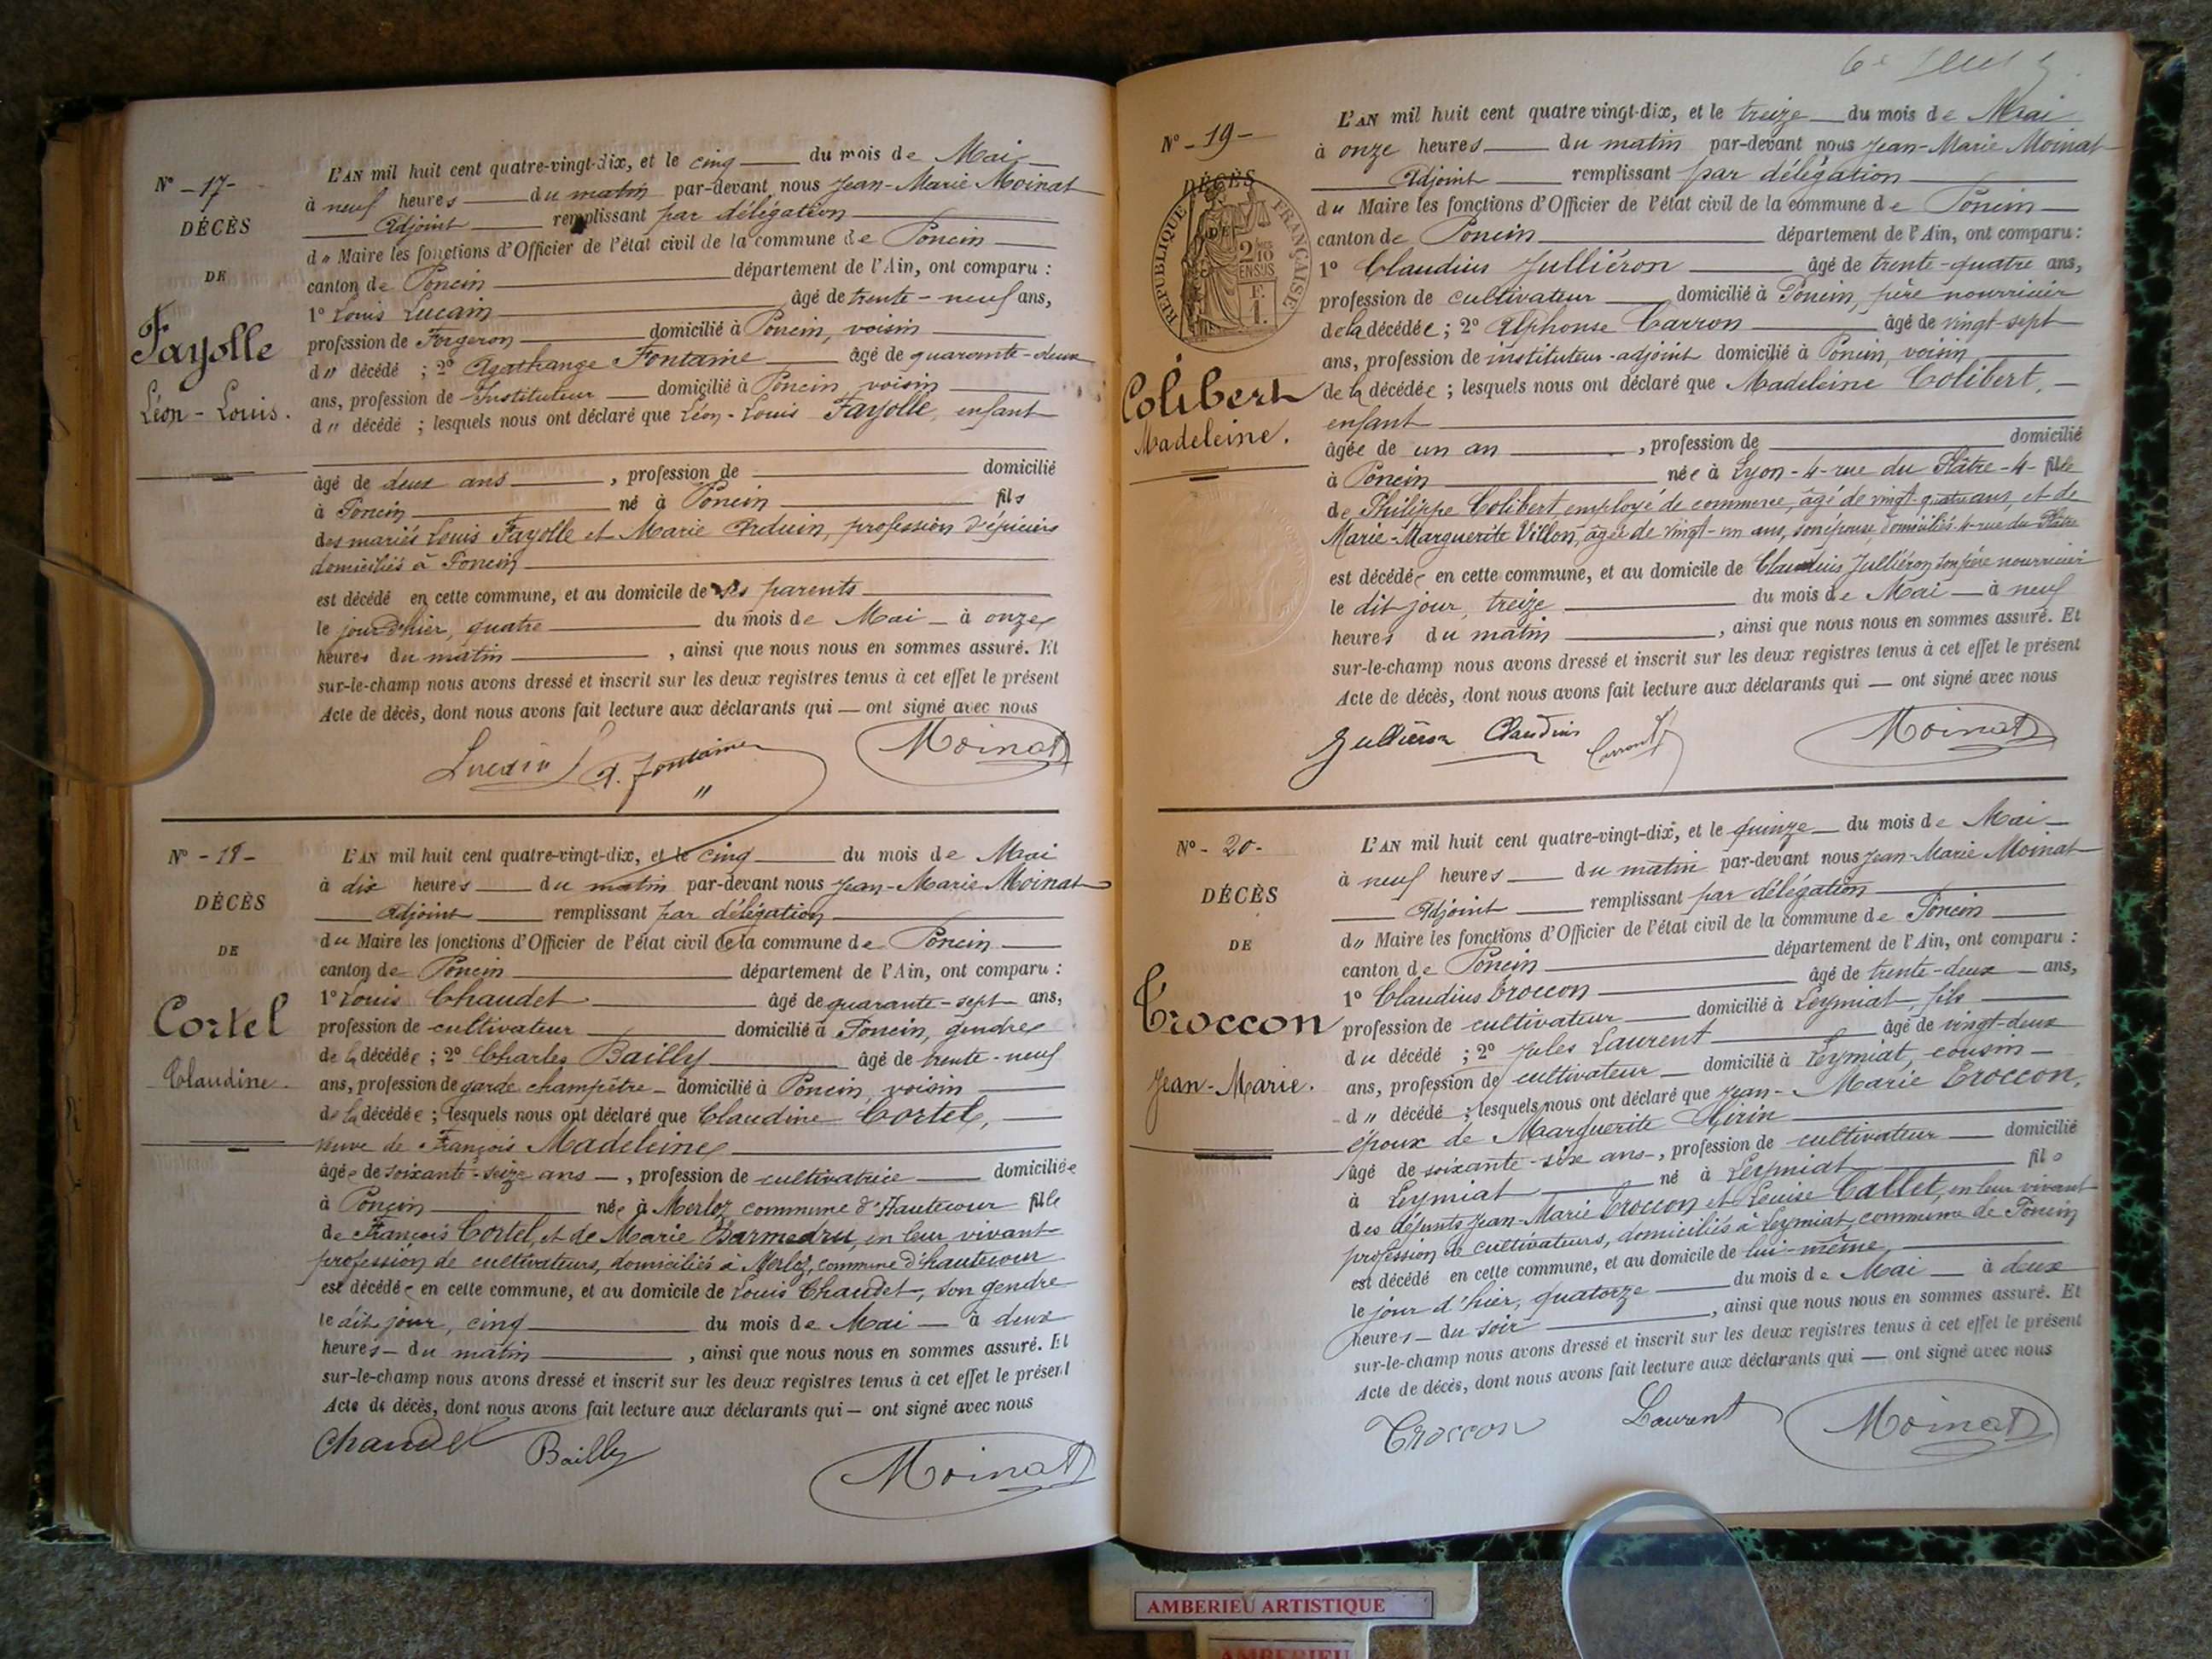 N° - 17 -
DÉCÈS
DE
Fayolle
Léon - Louis.
L'AN mil huit cent quatre-vingt-dix, et le cinq du mois de Mai
à neuf heures du matin par-devant nous Jean-Marie Moinat
Adjoint remplissant par délégation
d " Maire les fonctions d'Officier de l'état civil de la commune de Poncin
canton de Poncin département de l'Ain, ont comparu :
1° Louis Lucain âgé de trente-neuf ans,
profession de Forgeron domicilié à Poncin, voisin
d " décédé ; 2° Agathange Fontaine âgé de quarante-deux
ans, profession de Instituteur domicilié à Poncin, voisin
d " décédé ; lesquels nous ont déclaré que Léon-Louis Fayolle, enfant
âgé de deux ans , profession de domicilié
à Poncin né à Poncin fils
des mariés Louis Fayolle et Marie Arduin, profession d'épiciers
domiciliés à Poncin
est décédé en cette commune, et au domicile de ses parents
le jour d'hier, quatre du mois de Mai à onze
heures du matin , ainsi que nous nous en sommes assuré. Et
sur-le-champ nous avons dressé et inscrit sur les deux registres tenus à cet effet le présent
Acte de décès, dont nous avons fait lecture aux déclarants qui — ont signé avec nous
Lucain A. Fontaine Moinat
N° - 18 -
DÉCÈS
DE
Cortel
Claudine.
L'AN mil huit cent quatre-vingt-dix, et le cinq du mois de Mai
à dix heures du matin par-devant nous Jean-Marie Moinat
Adjoint remplissant par délégation
du Maire les fonctions d'Officier de l'état civil de la commune de Poncin
canton de Poncin département de l'Ain, ont comparu :
1° Louis Chaudet âgé de quarante-sept ans,
profession de cultivateur domicilié à Poncin, gendre
de la décédée ; 2° Charles Bailly âgé de trente-neuf
ans, profession de garde champêtre domicilié à Poncin, voisin
de la décédée ; lesquels nous ont déclaré que Claudine Cortel,
veuve de François Madeleine
âgée de soixante-seize ans — , profession de cultivatrice domiciliée
à Poncin née à Merloz commune d'Hautecour fille
de François Cortel, et de Marie Darmedru, en leur vivant
profession de cultivateurs, domiciliés à Merloz, commune d'hautecour
est décédée en cette commune, et au domicile de Louis Chaudet, son gendre
le dit jour, cinq du mois de Mai — à deux
heures — du matin , ainsi que nous nous en sommes assuré. Et
sur-le-champ nous avons dressé et inscrit sur les deux registres tenus à cet effet le présent
Acte de décès, dont nous avons fait lecture aux déclarants qui — ont signé avec nous
Chaudet Bailly Moinat
6e
N° - 19 -
DÉCÈS
DE
RÉPUBLIQUE FRANÇAISE
2/10
EN SUS
F.
1.
Colibert
Madeleine.
L'AN mil huit cent quatre vingt-dix, et le treize du mois de Mai
à onze heures du matin par-devant nous Jean-Marie Moinat
Adjoint remplissant par délégation
du Maire les fonctions d'Officier de l'état civil de la commune de Poncin
canton de Poncin département de l'Ain, ont comparu :
1° Claudius Julliéron âgé de trente-quatre ans,
profession de cultivateur domicilié à Poncin, père nourricier
de la décédée ; 2° Alphonse Carron âgé de vingt-sept
ans, profession de instituteur-adjoint domicilié à Poncin, voisin
de la décédée ; lesquels nous ont déclaré que Madeleine Colibert,
enfant
âgée de un an , profession de domicilié
à Poncin née à Lyon - 4 - rue du Plâtre - 4 - fille
de Philippe Colibert employé de commerce, âgé de vingt-quatre ans, et de
Marie-Marguerite Villon, âgée de vingt-un ans, son épouse, domiciliés 4 rue du Plâtre
est décédée en cette commune, et au domicile de Claudius Julliéron son père nourricier
le dit jour, treize du mois de Mai — à neuf
heures du matin , ainsi que nous nous en sommes assuré. Et
sur-le-champ nous avons dressé et inscrit sur les deux registres tenus à cet effet le présent
Acte de décès, dont nous avons fait lecture aux déclarants qui — ont signé avec nous
Julliéron Claudius Carron Moinat
N° - 20 -
DÉCÈS
DE
Croccon
Jean-Marie.
L'AN mil huit cent quatre-vingt-dix, et le quinze du mois de Mai
à neuf heures du matin par-devant nous Jean-Marie Moinat
Adjoint remplissant par délégation
d " Maire les fonctions d'Officier de l'état civil de la commune de Poncin
canton de Poncin département de l'Ain, ont comparu :
1° Claudius Croccon âgé de trente-deux ans,
profession de cultivateur domicilié à Leymiat, fils
du décédé ; 2° Jules Laurent âgé de vingt-deux
ans, profession de cultivateur domicilié à Leymiat, cousin
d " décédé ; lesquels nous ont déclaré que Jean-Marie Croccon,
époux de Marguerite
âgé de soixante-six ans , profession de cultivateur domicilié
à Leymiat né à Leymiat fils
des défunts Jean-Marie Croccon et Louise Callet, en leur vivant
profession de cultivateurs, domiciliés à Leymiat, commune de Poncin
est décédé en cette commune, et au domicile de lui-même
le jour d'hier, quatorze du mois de Mai — à deux
heures — du soir , ainsi que nous nous en sommes assuré. Et
sur-le-champ nous avons dressé et inscrit sur les deux registres tenus à cet effet le présent
Acte de décès, dont nous avons fait lecture aux déclarants qui — ont signé avec nous
Croccon Laurent Moinat
AMBERIEU ARTISTIQUE
AMBERIEU